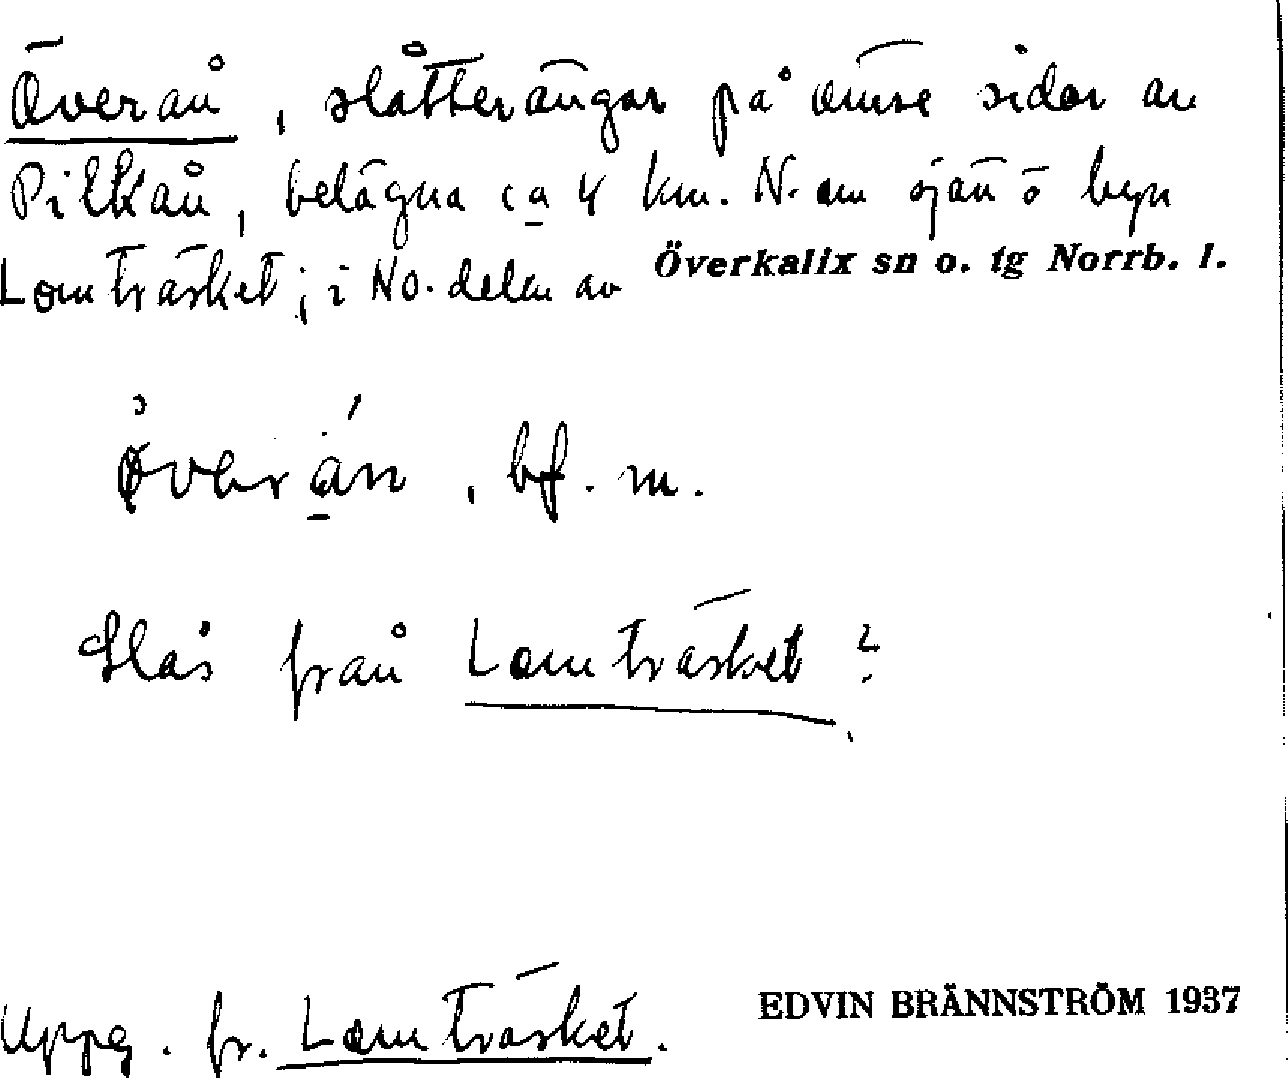 Överån, slåtterängar på ömse sidor av
Pilkån, belägna ca 4 km. N. om sjön o byn
Lomträsket; i NO. delen av Överkalix sn o. tg Norrb. l.
överån, bf. m.
Slås från Lomträsket?
Uppg. fr. Lomträsket.
EDVIN BRÄNNSTRÖM 1937